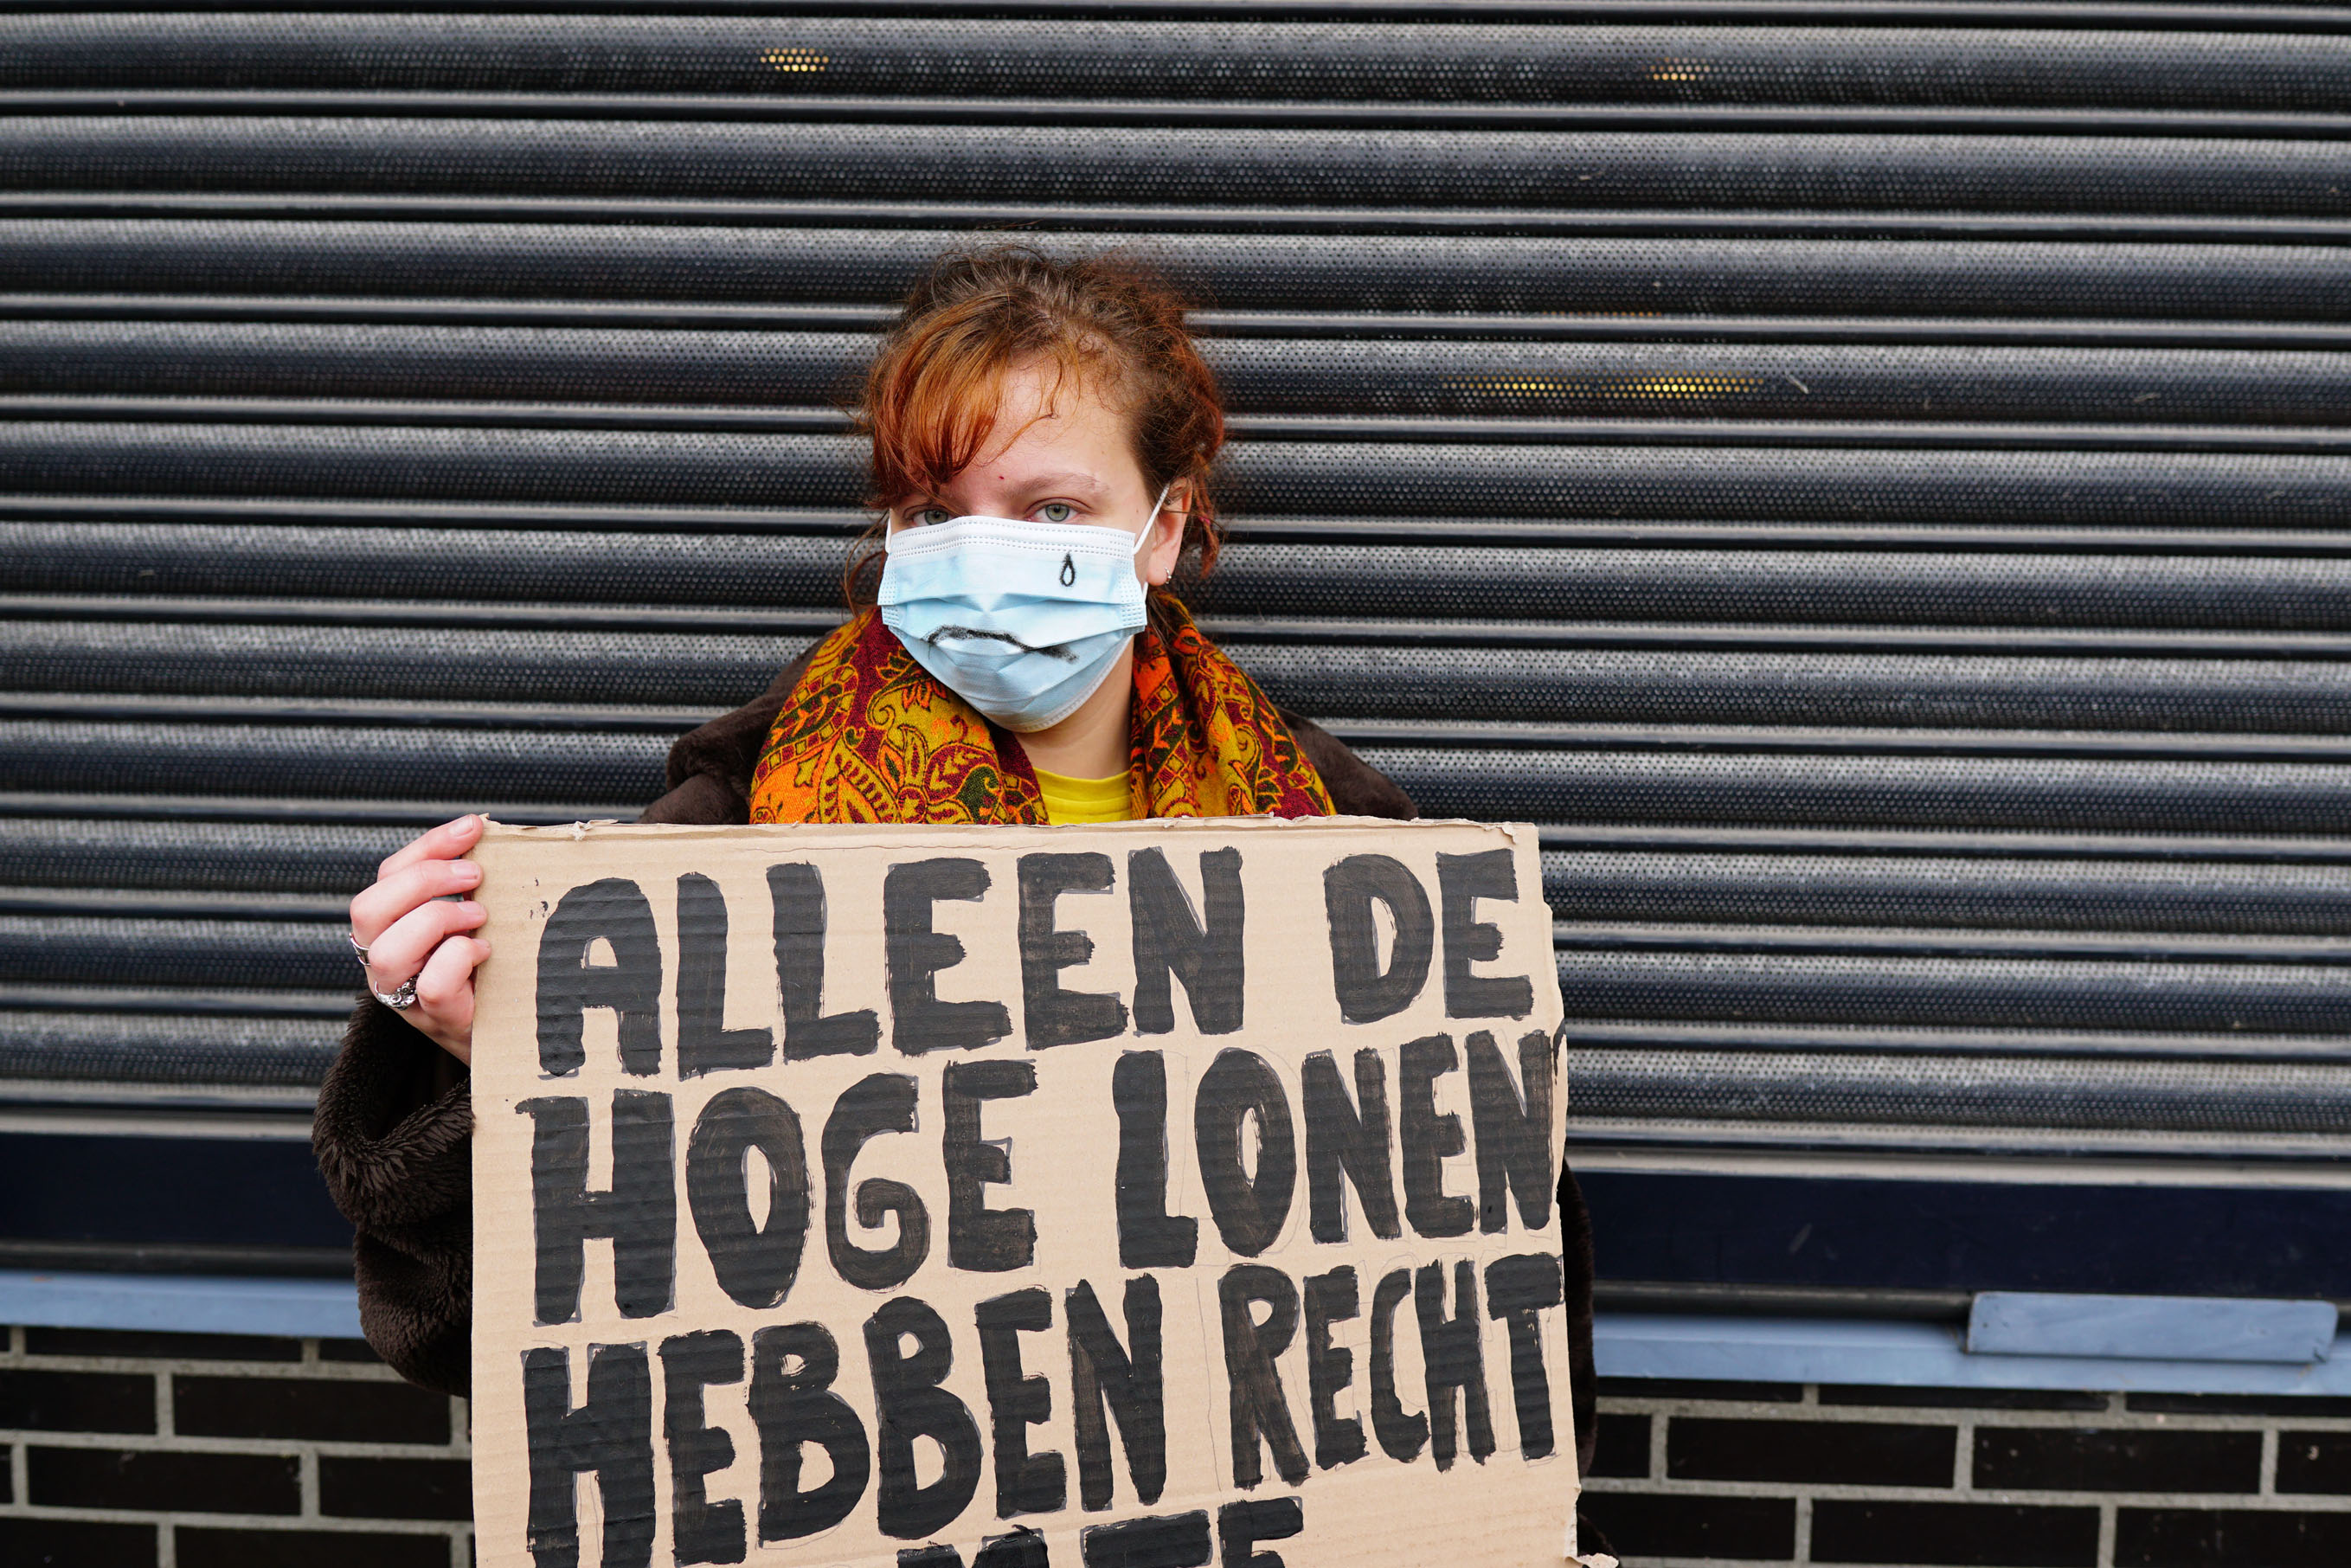 ALLEEN DE
HOGE LONEN
HEBBEN RECHT